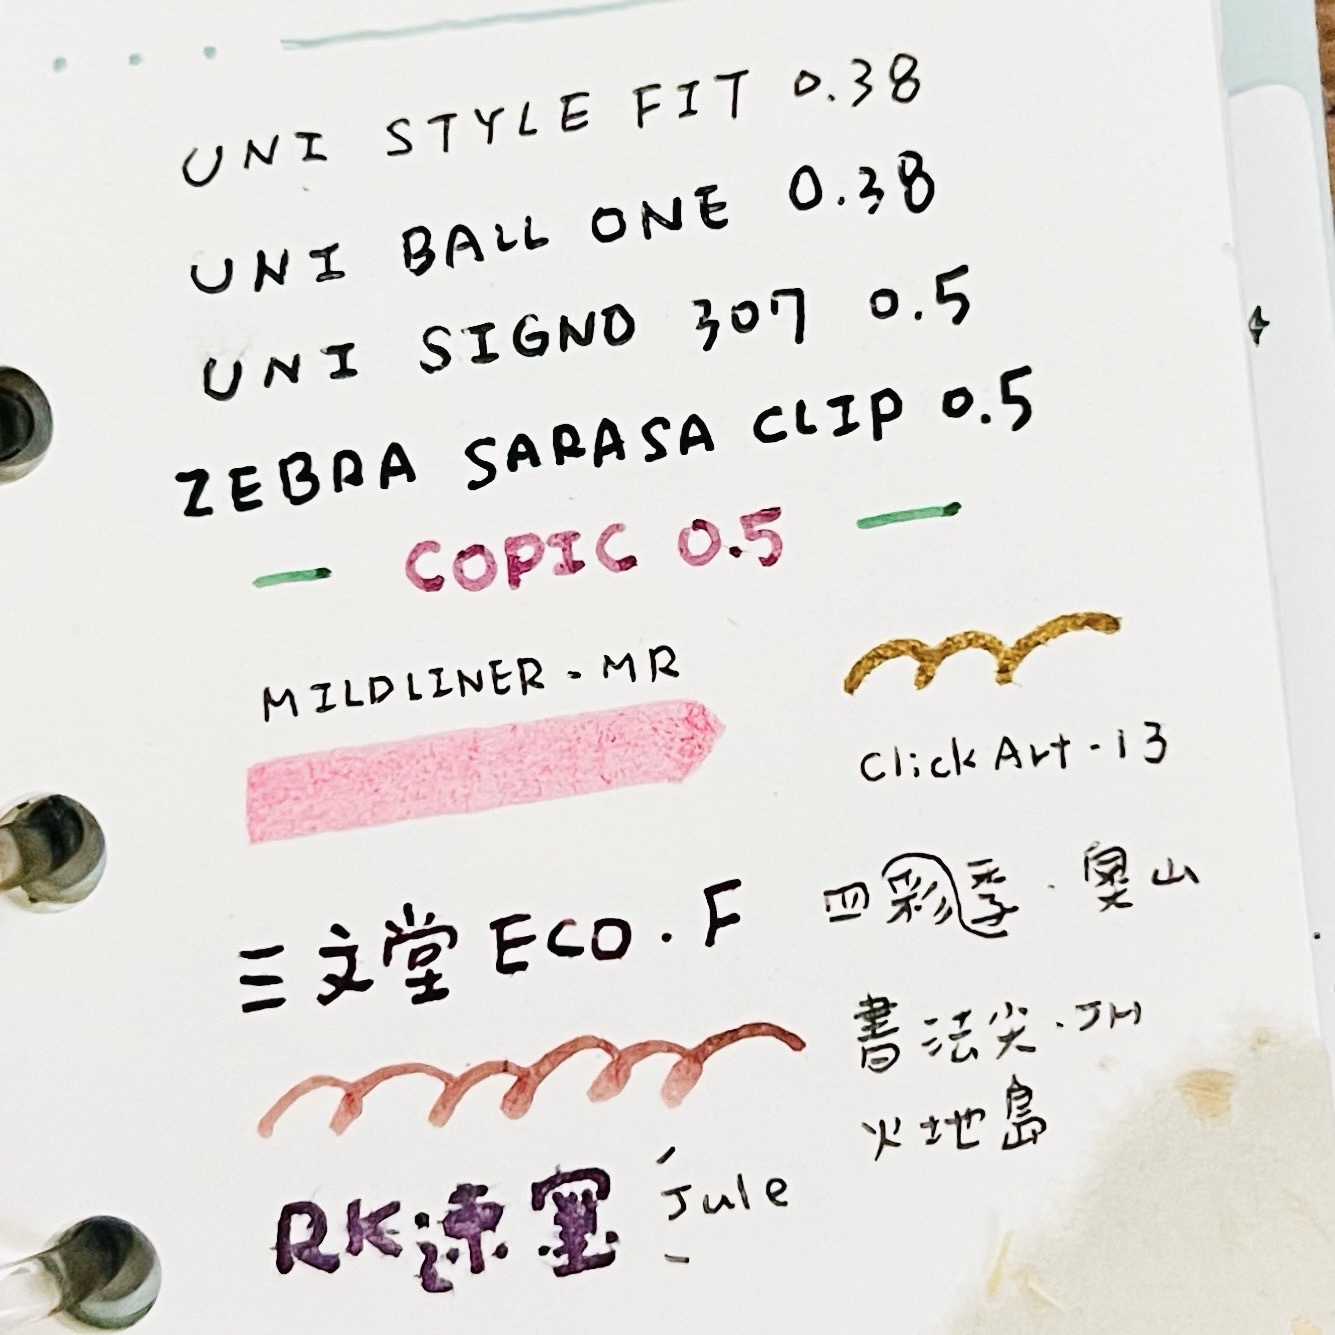 UNI STYLE FIT 0.38
UNI BALL ONE 0.38
UNI SIGNO 307 0.5
ZEBRA SARASA CLIP 0.5
COPIC 0.5
MILDLINER - MR
Click Art - 13
三文堂 ECO . F
四季彩 · 奧山
書法尖 . JH
火地島
RK涼墨
Jule